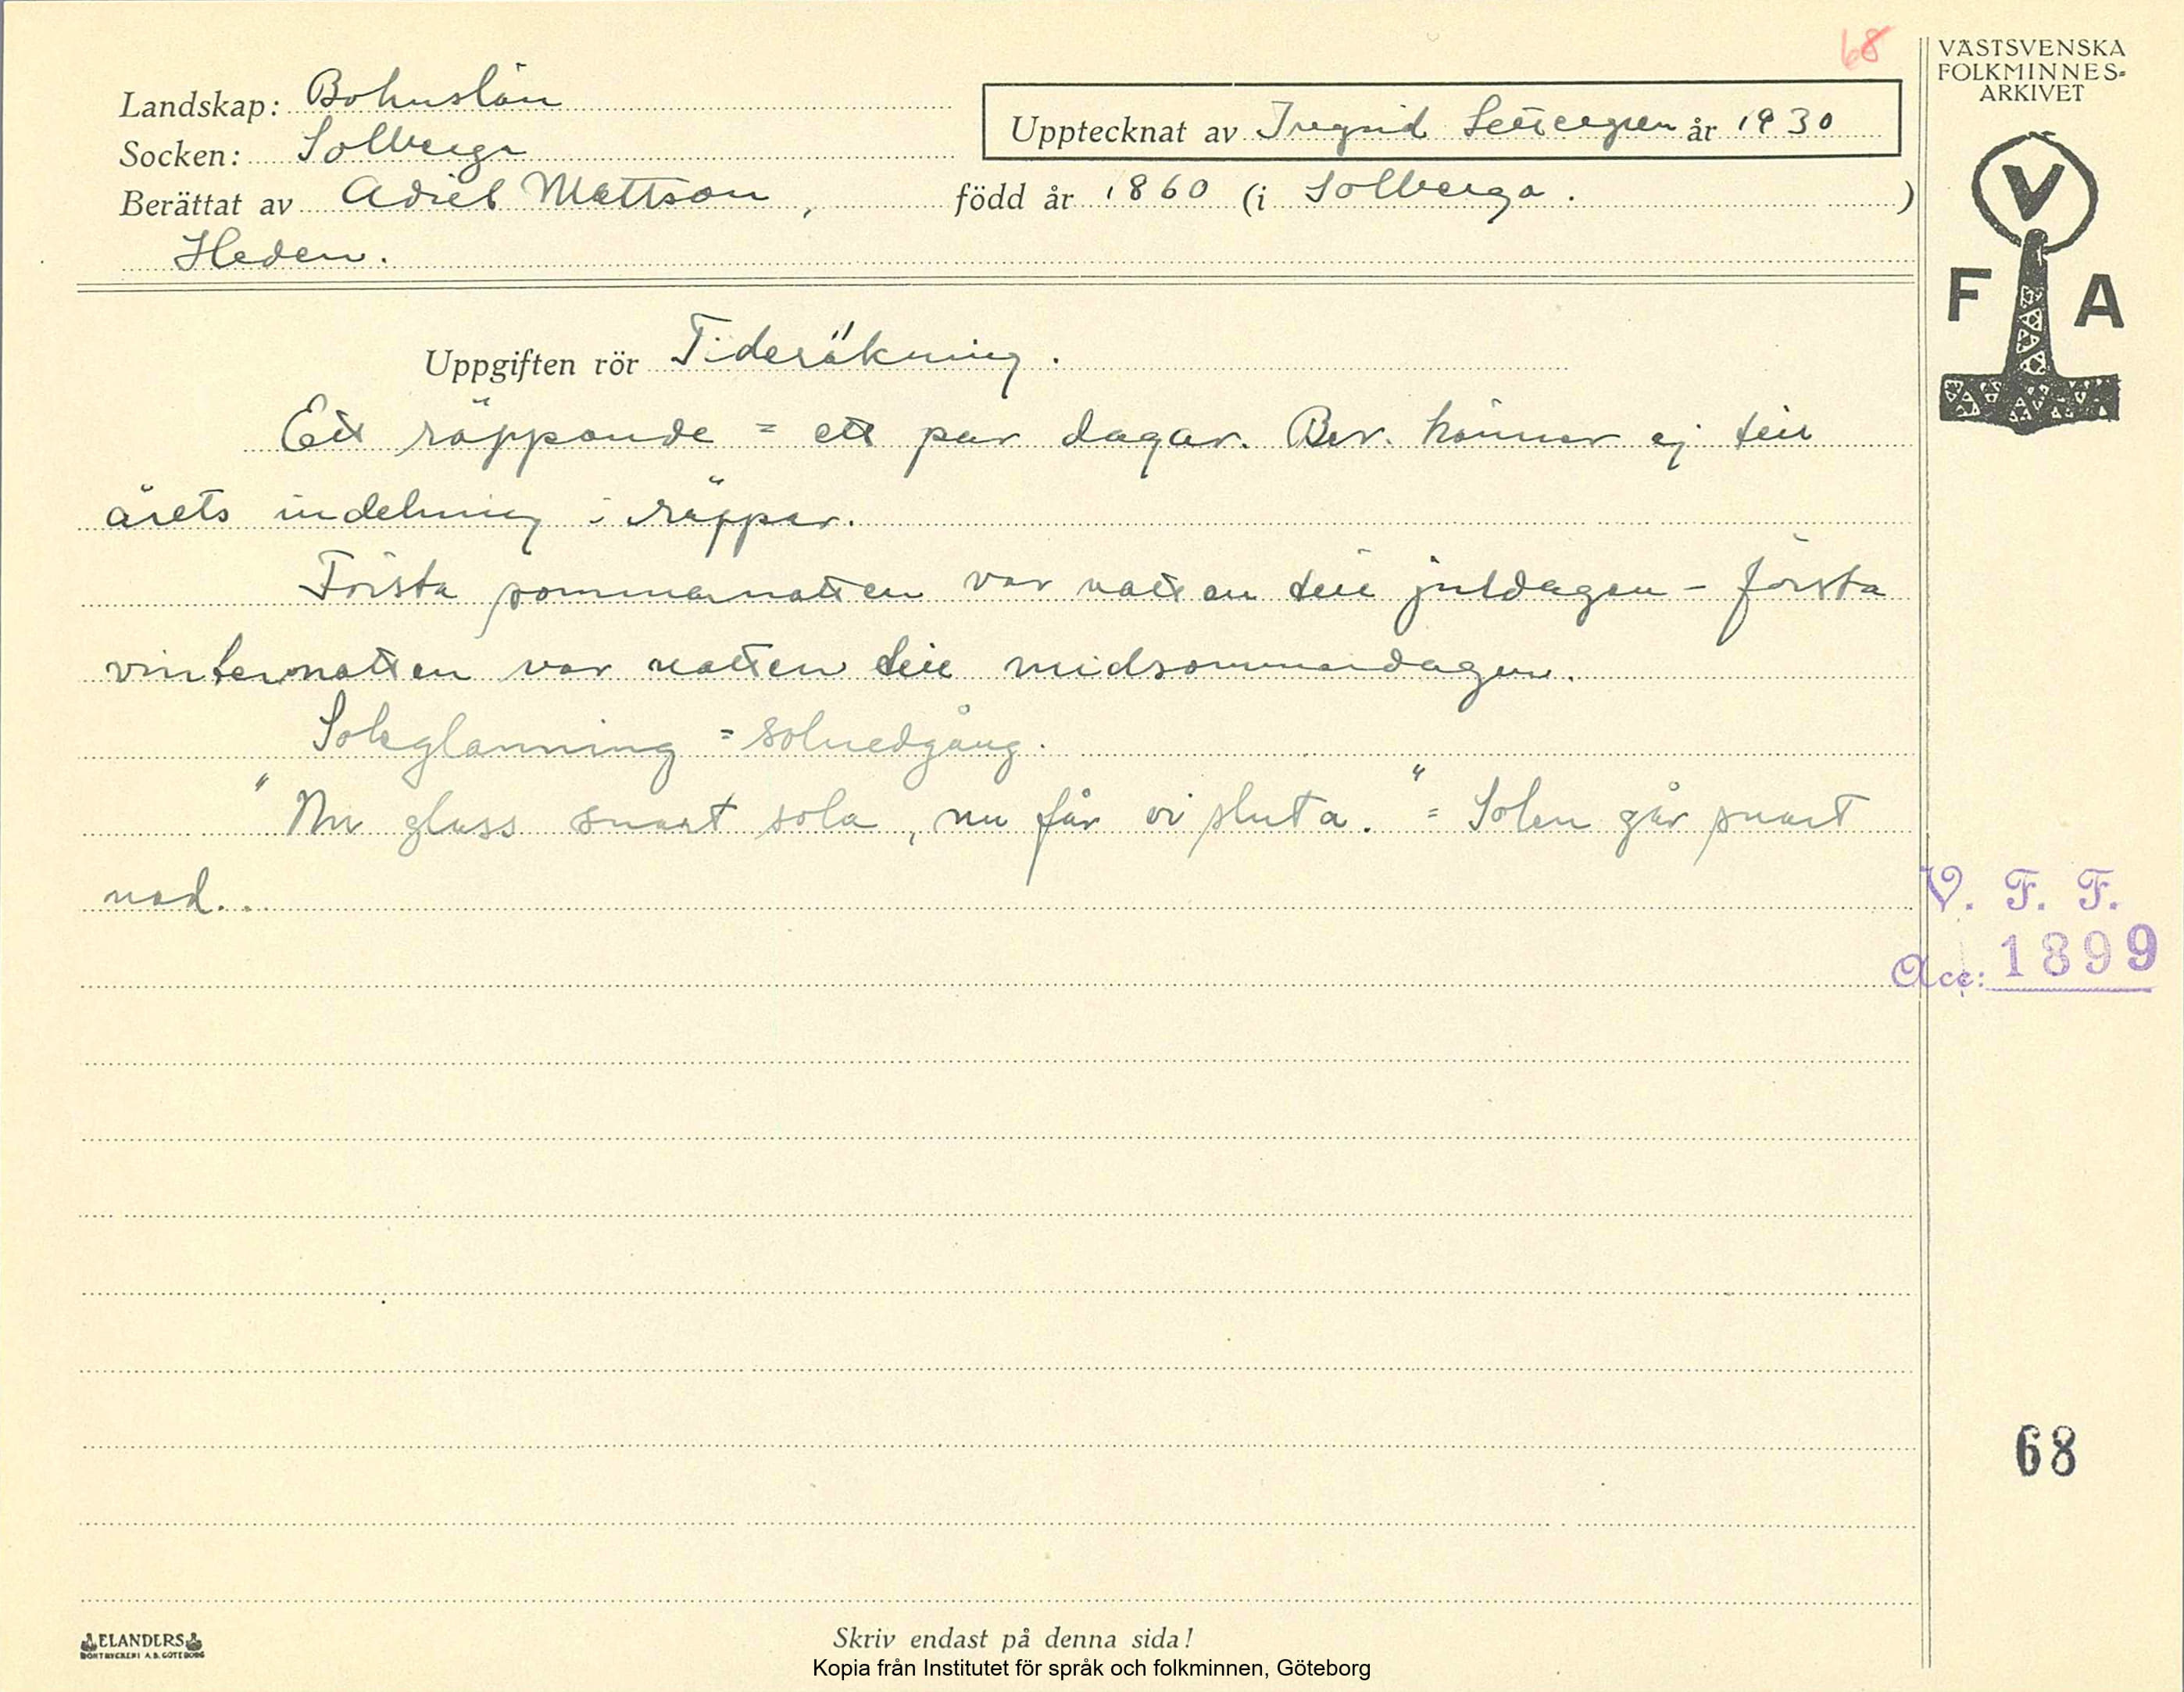 68
VÄSTSVENSKA
FOLKMINNES-
ARKIVET
Landskap: Bohuslän
Upptecknat av Ingrid Settergren år 1930
Socken: Solberga
Berättat av Adiel Mattson, född år 1860 (i Solberga. )
Heden.
V
F A
Uppgiften rör Tideräkning.
Ett räppande = ett par dagar. Ber. känner ej till
årets indelning i räppar.
Första sommarnatten var natten till juldagen - första
vinternatten var natten till midsommardagen.
Solaglanning = solnedgång.
"Nu glass snart sola, nu får vi sluta." = Solen går snart
ned.
V. F. F.
Acc: 1899
68
ELANDERS
BOKTRYCKERI A.B. GÖTEBORG
Skriv endast på denna sida!
Kopia från Institutet för språk och folkminnen, Göteborg